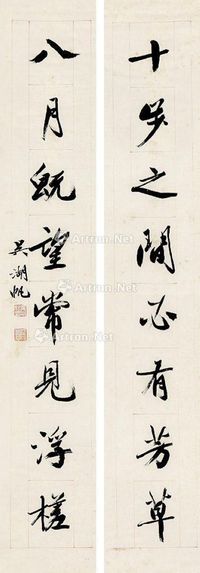 十步之間必有芳草
八月既望常見浮槎
吳湖帆
Artron.Net
Artron.Net